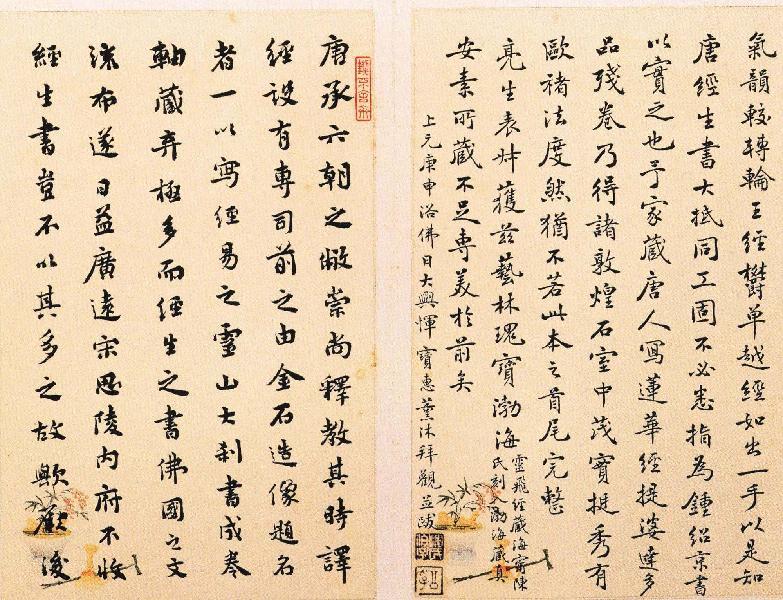 氣韻較轉輪王經鬱單越經如出一手以是知
唐經生書大抵同工固不必悉指為鍾紹京書
以實之也予家藏唐人寫蓮華經提婆達多
品殘卷乃得諸敦煌石室中茂實挺秀有
歐褚法度然猶不若此本之首尾完整
亮生表叔獲茲藝林瑰寶渤海
靈飛經藏海甯陳
氏刻入渤海藏真
安素所藏不足專美於前矣
上元庚申浴佛日大興惲寶惠薰沐拜觀並跋
唐承六朝之敝崇尚釋教其時譯
經設有專司前之由金石造像題名
者一以寫經易之靈山大刹書成卷
軸藏弆極多而經生之書佛國之文
流布遂日益廣遠宋思陵内府不收
經生書豈不以其多之故歟後